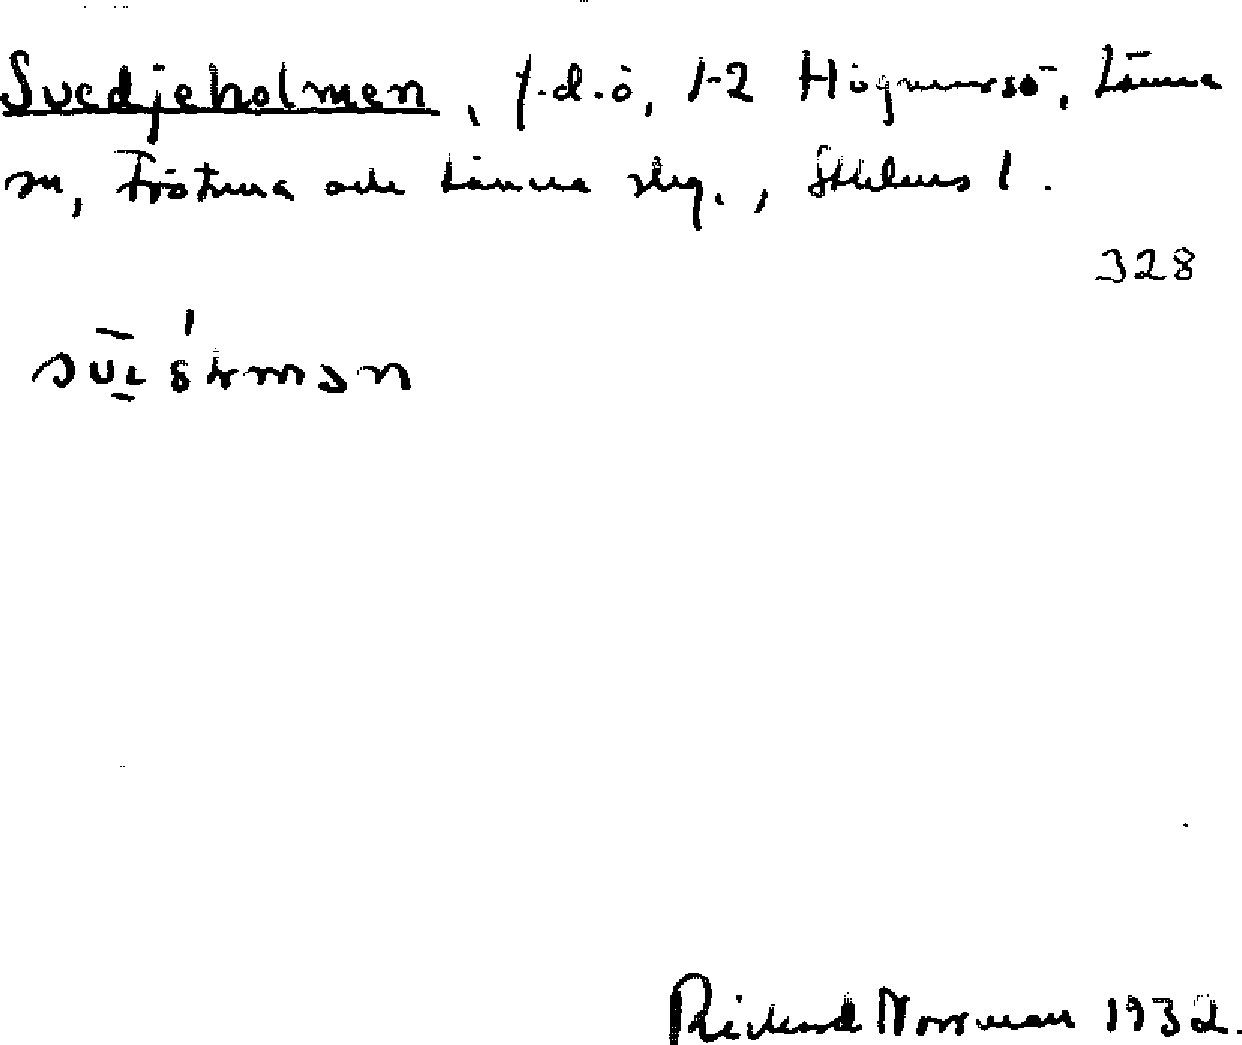 Svedjeholmen, f.d.ö, 1-2 Högmarsö, Länna
sn, Frötuna och Länna slg., Sthlms l.
328
Rickard Norrman 1932.